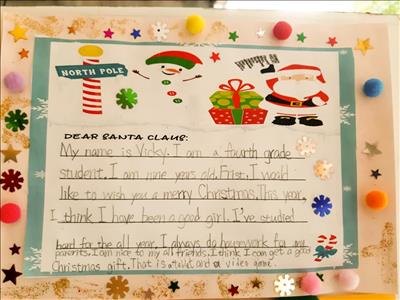 NORTH POLE
DEAR SANTA CLAUS:
My name is Vicky. I am a fourth grade
student. I am nine years old. Frist, I want
like to wish you a merry Christmas. This year,
I think I have been a good girl. I've studied
hard for the all year. I always do homework for my
parents. I am nice to my all friends. I think I can get a good
Christmas gift. That is a and a video game.